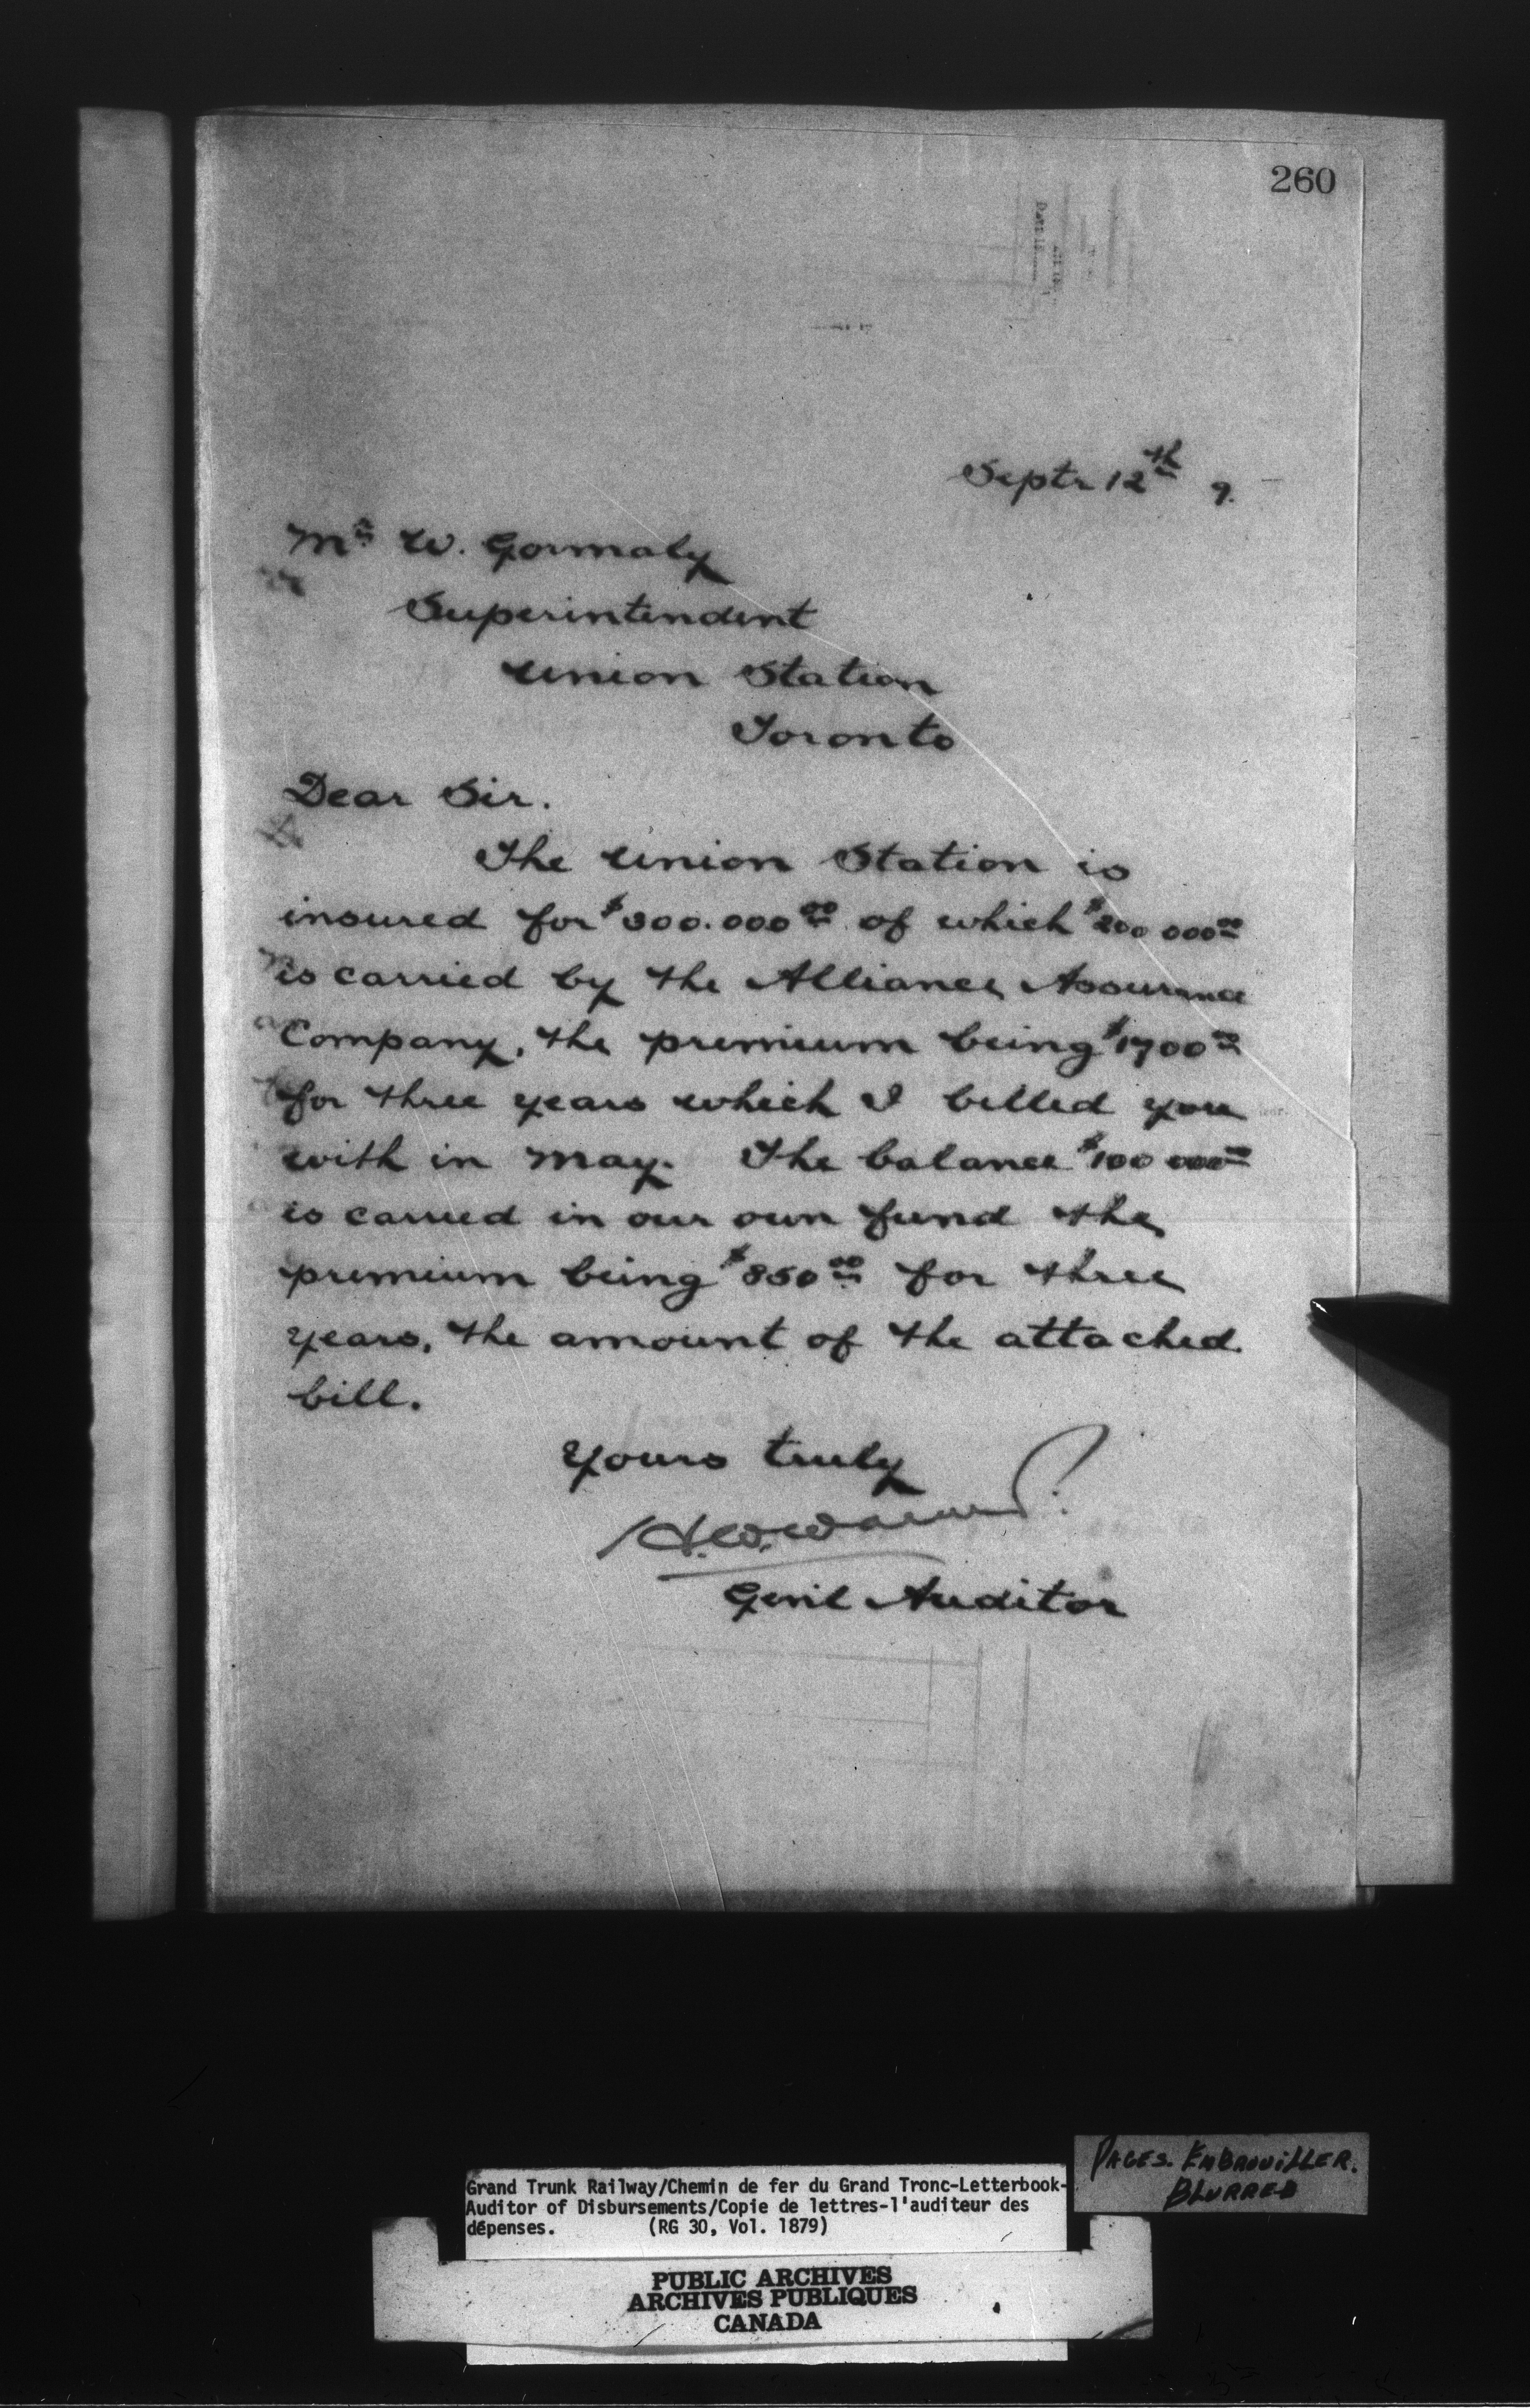 260
Septr 12th 9.
Mr W. Gormaly
Superintendent
Union Station
Toronto
Dear Sir.
The Union Station is
insured for $300.000 00 of which $200 000 00
is carried by the Alliance Assurance
Company, the premium being $1700 00
for three years which I billed you
with in May. The balance $100 000 00
is carried in our own fund the
premium being $850 00 for three
years, the amount of the attached
bill.
Yours truly
H.W. Walker
Genl Auditor
PAGES. EMBROUILLER.
BLURRED
Grand Trunk Railway/Chemin de fer du Grand Tronc-Letterbook-
Auditor of Disbursements/Copie de lettres-l'auditeur des
dépenses. (RG 30, Vol. 1879)
PUBLIC ARCHIVES
ARCHIVES PUBLIQUES
CANADA